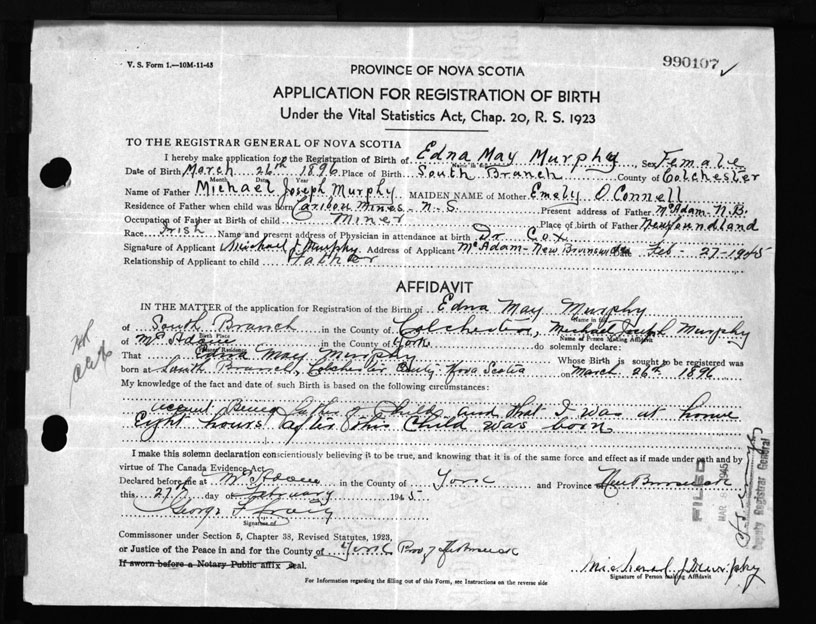 V. S. Form 1.—10M-11-43
990107
PROVINCE OF NOVA SCOTIA
APPLICATION FOR REGISTRATION OF BIRTH
Under the Vital Statistics Act, Chap. 20, R. S. 1923
TO THE REGISTRAR GENERAL OF NOVA SCOTIA
I hereby make application for the Registration of Birth of Edna May Murphy Sex Female
Date of Birth March 26th 1896 Place of Birth South Branch County of Colchester
Month Date Year
Name of Father Michael Joseph Murphy MAIDEN NAME of Mother Emely O Connell
Residence of Father when child was born Caribou Mines - N. S. Present address of Father McAdam - N.B.
Occupation of Father at Birth of child Miner Place of birth of Father Newfoundland
Race Irish Name and present address of Physician in attendance at birth Dr Cox
Signature of Applicant Michael J Murphy Address of Applicant McAdam - New Brunswick Feb - 27-1945
Relationship of Applicant to child Father
AFFIDAVIT
IN THE MATTER of the application for Registration of the Birth of Edna May Murphy
Name in full
of South Branch in the County of Colchester, Michael Joseph Murphy
Birth Place Name of Person Making Affidavit
of McAdam in the County of York do solemnly declare:
That Edna May Murphy Whose Birth is sought to be registered was
born at South Branch, Colchester County Nova Scotia on March 26th 1896
My knowledge of the fact and date of such Birth is based on the following circumstances:
account Being father of Child and that I was at home
Eight hours after this Child was born
I make this solemn declaration conscientiously believing it to be true, and knowing that it is of the same force and effect as if made under oath and by
virtue of The Canada Evidence Act.
Declared before me at McAdam in the County of York and Province of New Brunswick
this 27th day of February 1945
George F Craig
Signature of
Commissioner under Section 5, Chapter 38, Revised Statutes, 1923,
or Justice of the Peace in and for the County of York Prov of New Brunswick
If sworn before a Notary Public affix seal.
Michael J Murphy
Signature of Person making Affidavit
For Information regarding the filling out of this Form, see Instructions on the reverse side
FILED
MAR 8 1945
Deputy Registrar General